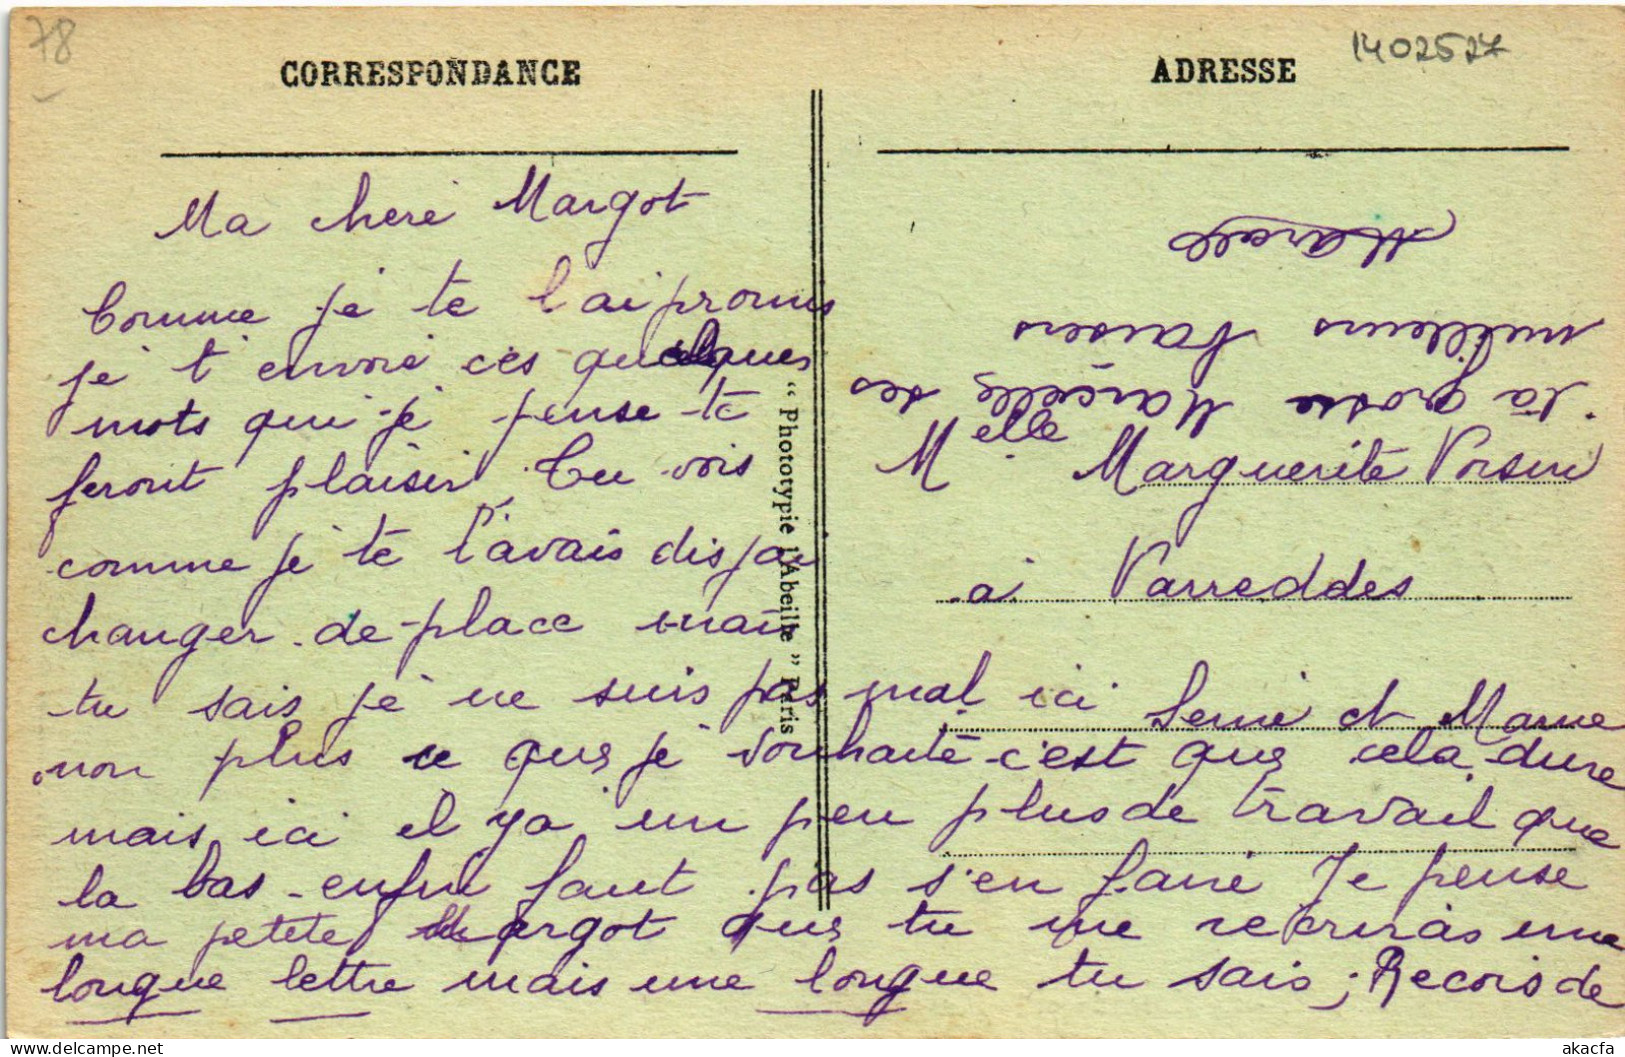 78
CORRESPONDANCE
ADRESSE
1402527
Ma cheré Margot
Comme je te l'ai promis
je t'envoie ces quelques
mots qui je pense te
feront plaisir. Tu vois
comme je te l'avais dis j'ai
changer de place mais
tu sais je ne suis pas mal ici
non plus ce que je souhaite c'est que cela dure
mais ici il y a un peu plus de travail que
la bas enfin faut pas s'en faire Je pense
ma petite Margot que tu me recriras une
longue lettre mais une longue tu sais; Recois de
ta grosse Marcelle ses
meilleurs baisers
Marcelle
Melle Marguerite Voisin
a Varreddes
Seine et Marne
"Phototypie l'Abeille" Paris
akacfa